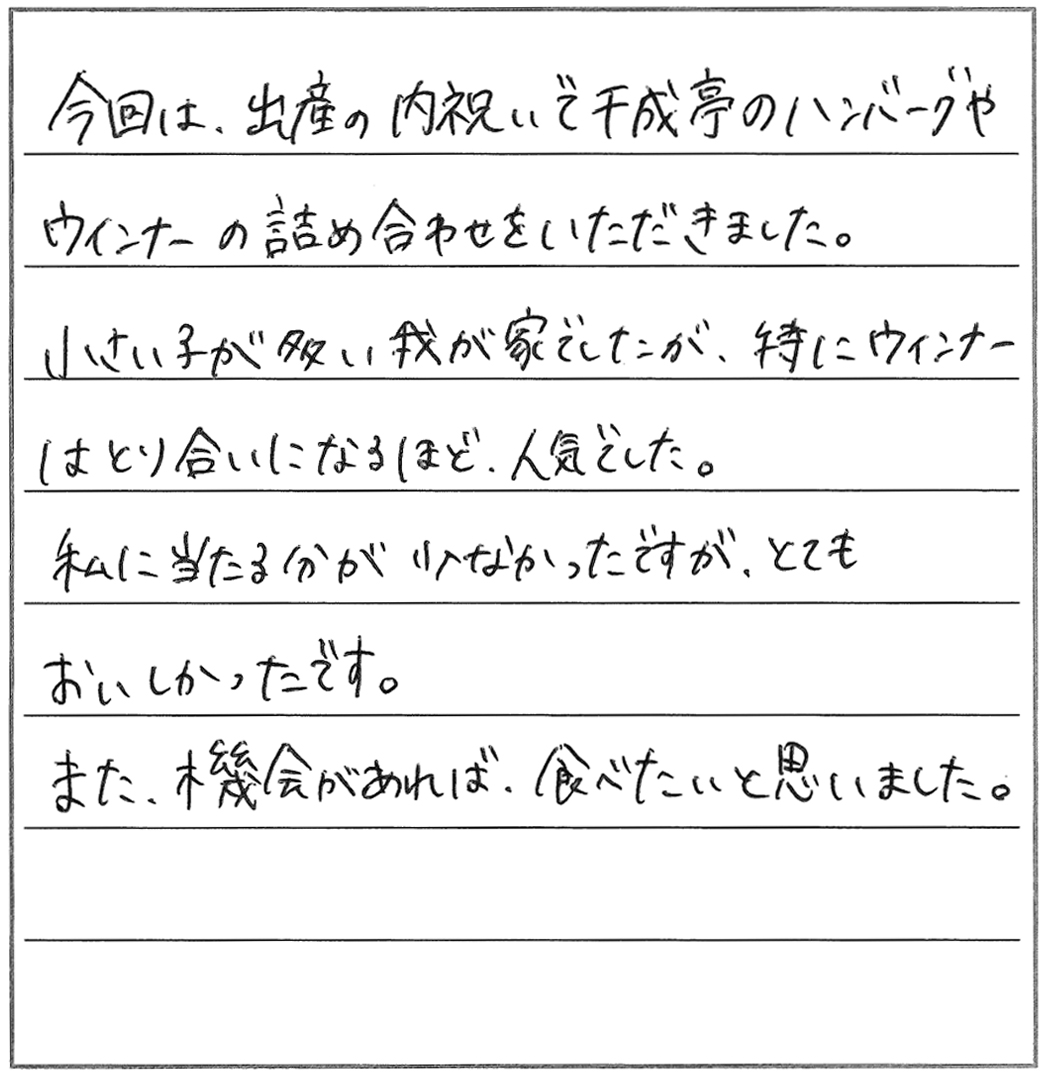 今回は、出産の内祝いで千成亭のハンバーグや
ウインナーの詰め合わせをいただきました。
小さい子が多い我が家でしたが、特にウィンナー
はとり合いになるほど、人気でした。
私に当たる分が少なかったですが、とても
おいしかったです。
また、機会があれば、食べたいと思いました。